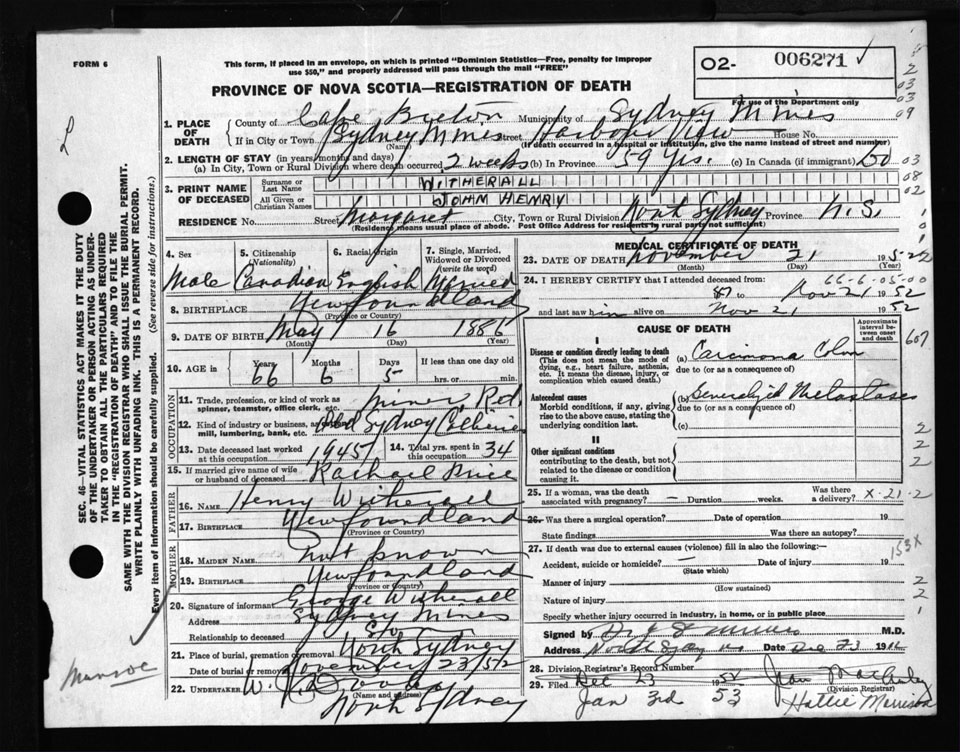 FORM 6
This form, if placed in an envelope, on which is printed "Dominion Statistics—Free, penalty for improper
use $50," and properly addressed will pass through the mail "FREE"
02- 006271
PROVINCE OF NOVA SCOTIA—REGISTRATION OF DEATH
For use of the Department only
1. PLACE OF DEATH
County of Cape Breton Municipality of Sydney Mines
If in City or Town Sydney Mines Street Harbour View House No.
(Name) (If death occurred in a hospital or institution, give the name instead of street and number)
2. LENGTH OF STAY (in years, months and days)
(a) In City, Town or Rural Division where death occurred 2 weeks (b) In Province 59 Yrs. (c) In Canada (if immigrant) Do
3. PRINT NAME OF DECEASED
Surname or Last Name WITHERALL
All Given or Christian Names JOHN HENRY
RESIDENCE No. Street Margaret City, Town or Rural Division North Sydney Province N.S.
(Residence means usual place of abode. Post Office Address for residents in rural parts not sufficient)
4. Sex Male
5. Citizenship (Nationality) Canadian
6. Racial Origin English
7. Single, Married, Widowed or Divorced (write the word) Married
8. BIRTHPLACE Newfoundland
(Province or Country)
9. DATE OF BIRTH May 16 1886
(Month) (Day) (Year)
10. AGE in Years 66 Months 6 Days 5 If less than one day old
hrs. or min.
OCCUPATION
11. Trade, profession, or kind of work as spinner, teamster, office clerk, etc. miner, Ret.
12. Kind of industry or business, as mill, lumbering, bank, etc. Old Sydney Collieries
13. Date deceased last worked at this occupation 1945
14. Total yrs. spent in this occupation 34
15. If married give name of wife or husband of deceased Rachael Price
FATHER
16. NAME Henry Witherall
17. BIRTHPLACE Newfoundland
(Province or Country)
MOTHER
18. MAIDEN NAME Not known
19. BIRTHPLACE Newfoundland
(Province or Country)
20. Signature of informant George Witherall
Address Sydney Mines
Relationship to deceased Son
21. Place of burial, cremation or removal North Sydney
Date of burial or removal November 23/52
22. UNDERTAKER
(Name and address)
North Sydney
MEDICAL CERTIFICATE OF DEATH
23. DATE OF DEATH November 21 1952
(Month) (Day) (Year)
66-6-05-00
24. I HEREBY CERTIFY that I attended deceased from:
to Nov 21 1952
and last saw him alive on Nov 21 1952
CAUSE OF DEATH
Approximate interval between onset and death
I
Disease or condition directly leading to death (a) Carcinoma Colon
(This does not mean the mode of dying, e.g., heart failure, asthenia, etc. It means the disease, injury, or complication which caused death.)
due to (or as a consequence of)
Antecedent causes (b) Generalized Metastases
Morbid conditions, if any, giving rise to the above cause, stating the underlying condition last.
due to (or as a consequence of)
(c)
II
Other significant conditions
contributing to the death, but not related to the disease or condition causing it.
25. If a woman, was the death associated with pregnancy? — Duration weeks. Was there a delivery? X-21-2
26. Was there a surgical operation? Date of operation 19
State findings Was there an autopsy?
27. If death was due to external causes (violence) fill in also the following:—
Accident, suicide or homicide? Date of injury 19
(State which)
Manner of injury
(How sustained)
Nature of injury
Specify whether injury occurred in industry, in home, or in public place
Signed by M.D.
Address North Sydney NS Date Dec 23 19
28. Division Registrar's Record Number
29. Filed Dec 23 1952
(Division Registrar)
Jan 3rd 53 Hattie Morrison
SEC. 46—VITAL STATISTICS ACT MAKES IT THE DUTY
OF THE UNDERTAKER OR PERSON ACTING AS UNDER-
TAKER TO OBTAIN ALL THE PARTICULARS REQUIRED
IN THE "REGISTRATION OF DEATH" AND TO FILE THE
SAME WITH THE DIVISION REGISTRAR WHO SHALL ISSUE THE BURIAL PERMIT.
WRITE PLAINLY WITH UNFADING INK. THIS IS A PERMANENT RECORD.
Every item of information should be carefully supplied. (See reverse side for instructions.)
Munroe
607
153X